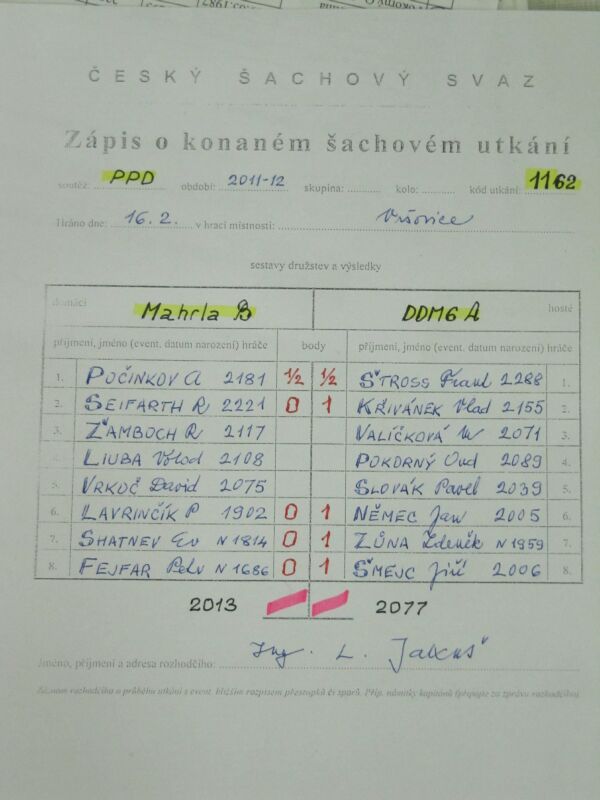 ČESKÝ ŠACHOVÝ SVAZ
Zápis o konaném šachovém utkání
soutěž: PPD období: 2011-12 skupina: kolo: kód utkání: 1162
Hráno dne: 16.2. v hrací místnosti: Vršovice
sestavy družstev a výsledky
domácí Mahrla B DDM6 A hosté
příjmení, jméno (event. datum narození) hráče body příjmení, jméno (event. datum narození) hráče
1. POČINKOV A 2181 ½ ½ ŠTROSS Frant 2288 1.
2. SEIFARTH R 2221 0 1 KŘIVÁNEK Vlad 2155 2.
3. ŽAMBOCH R 2117 VALÍČKOVÁ 2071 3.
4. LIUBA Volod 2108 POKORNÝ Ond 2089 4.
5. VRKOČ David 2075 SLOVÁK Pavel 2039 5.
6. LAVRINČÍK P 1902 0 1 NĚMEC Jan 2005 6.
7. SHATNEV Ev N 1814 0 1 ZŮNA Zdeněk N 1959 7.
8. FEJFAR Petr N 1686 0 1 ŠMEJC Jiří 2006 8.
2013 2077
Jméno, příjmení a adresa rozhodčího: Ing. L.
Záznam rozhodčího o průběhu utkání s event. bližším rozpisem přestupků či sporů. Příp. námitky kapitánů (připojte za zprávu rozhodčího)